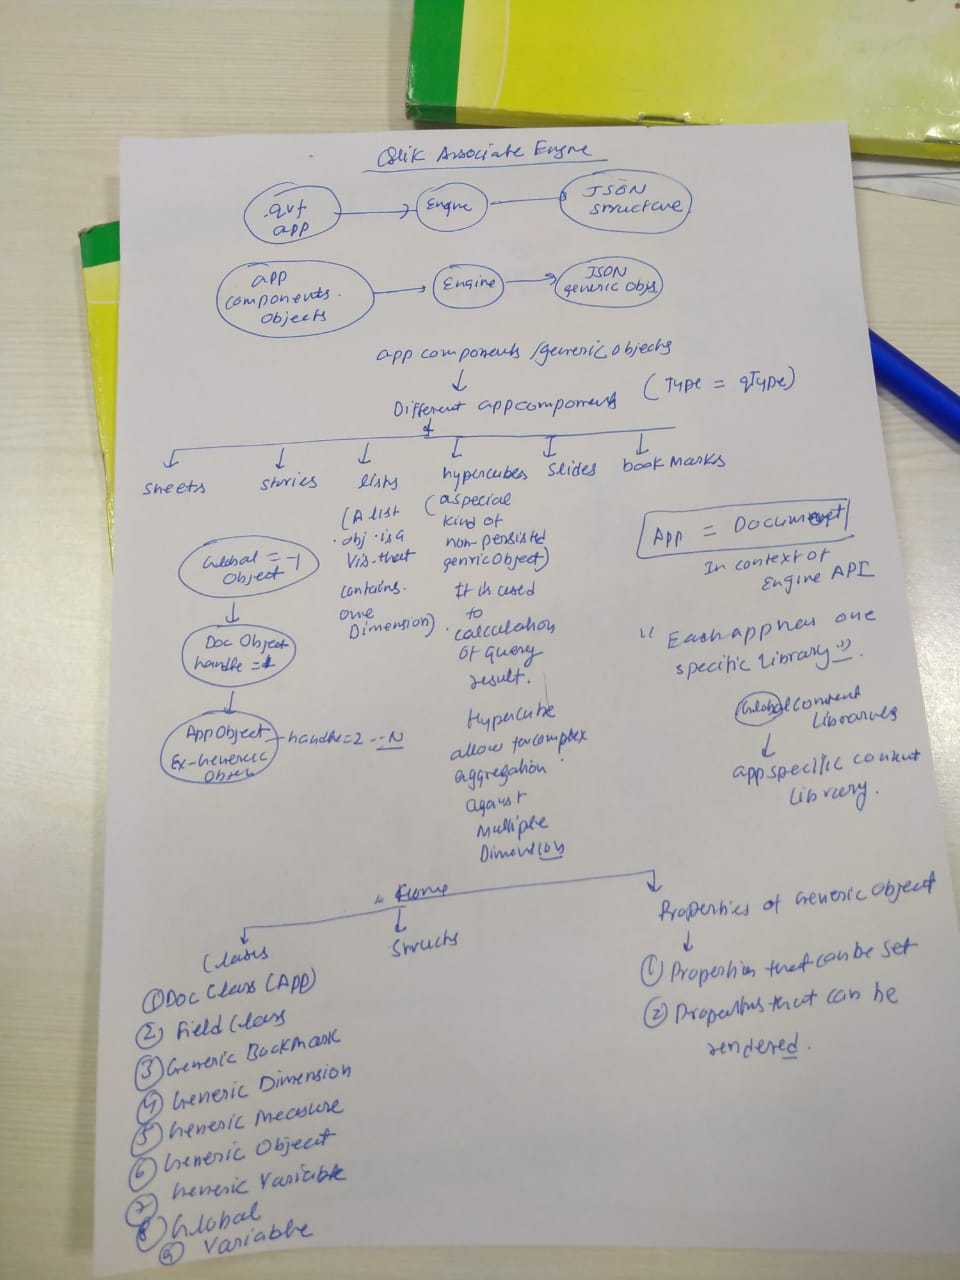 Qlik Associate Engine
.qvf app
Engine
JSON structure
app components. objects
Engine
JSON generic objs
app components /generic objects
Different app components
(Type = qType)
sheets
stories
lists
hypercubes
slides
book marks
(A list
obj. is a
Vis. that
contains.
one
Dimension)
(a special
kind of
non-persisted
genric Object)
It is used
to
calculation
of query
result.
Hypercube
allow for complex
aggregation
against
Multiple
Dimension
Global = -1
Object
Doc Object
handle = 1
App Object
Ex-Generic
Objec
handle=2 --N
App = Document
In context of
Engine API
" Each app has one
specific Library".
Global content
Libraries
app specific content
Library.
Classes
Structs
Properties of Generic Object
① Doc Class (App)
② Field Class
③ Generic Bookmark
④ Generic Dimension
⑤ Generic Measure
⑥ Generic Object
⑦ Generic Variable
⑧ Global
⑨ Variable
① Properties that can be set
② Properties that can be
rendered.